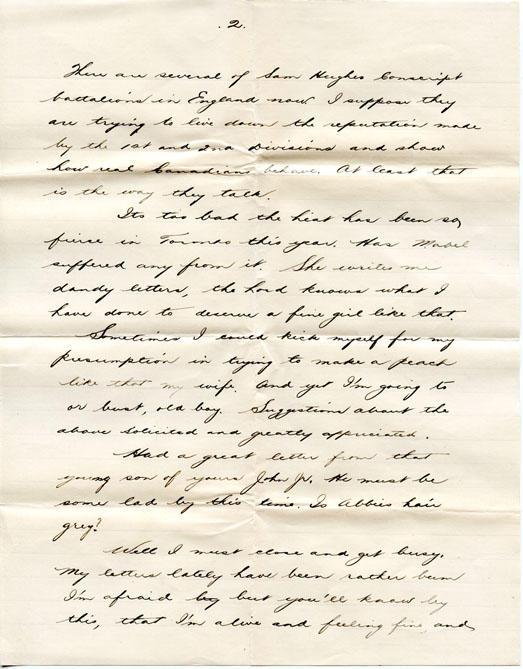 .2.
There are several of Sam Hughes Conscript
battalions in England now. I suppose they
are trying to live down the reputation made
by the 1st and 2nd Divisions and show
how real Canadians behave. At least that
is the way they talk.
Its too bad the heat has been so
fierce in Toronto this year. Has Mabel
suffered any from it. She writes me
dandy letters, the Lord knows what I
have done to deserve a fine girl like that.
Sometimes I could kick myself for my
presumption in trying to make a peach
like that my wife. And yet I'm going to
or bust, old boy. Suggestions about the
above solicited and greatly appreciated.
Had a great letter from that
young son of yours John Jr. He must be
some lad by this time. Is Abbies hair
grey?
Well I must close and get busy.
My letters lately have been rather bum
I'm afraid but you'll know by
this, that I'm alive and feeling fine, and